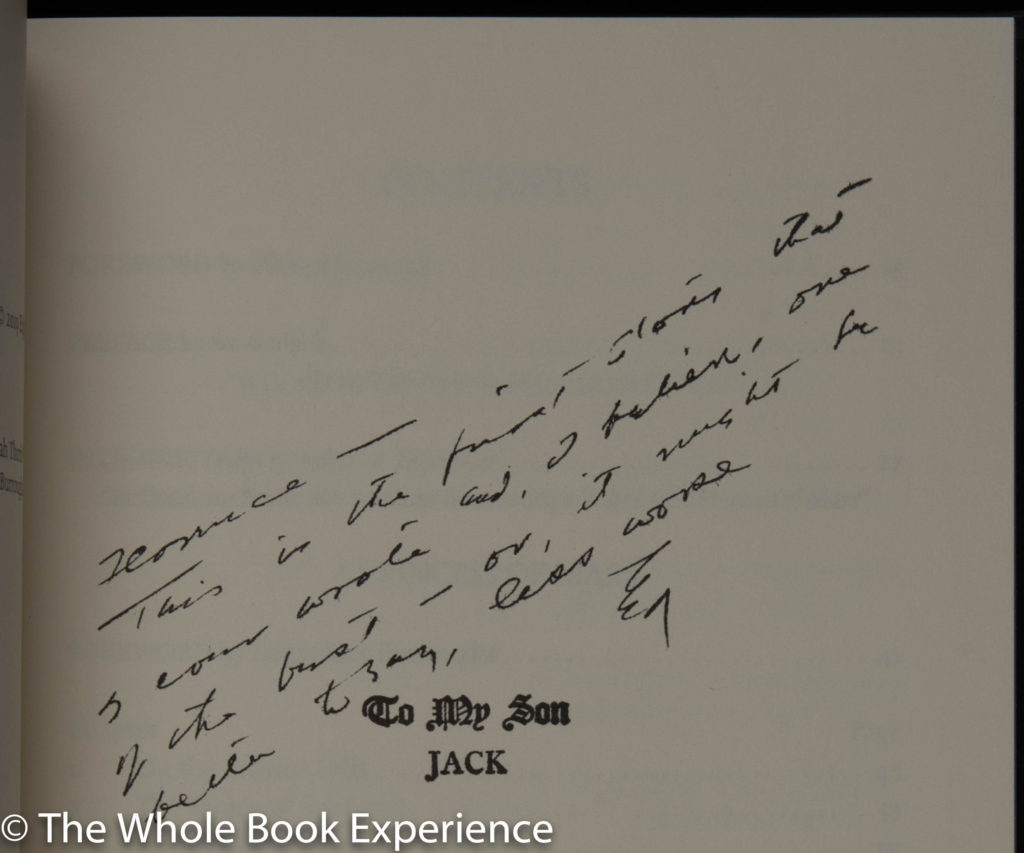 This is the first story that
I ever wrote and, I believe, one
of the best — or, it might be
better to say, less worse
Ed
To My Son
JACK
© The Whole Book Experience